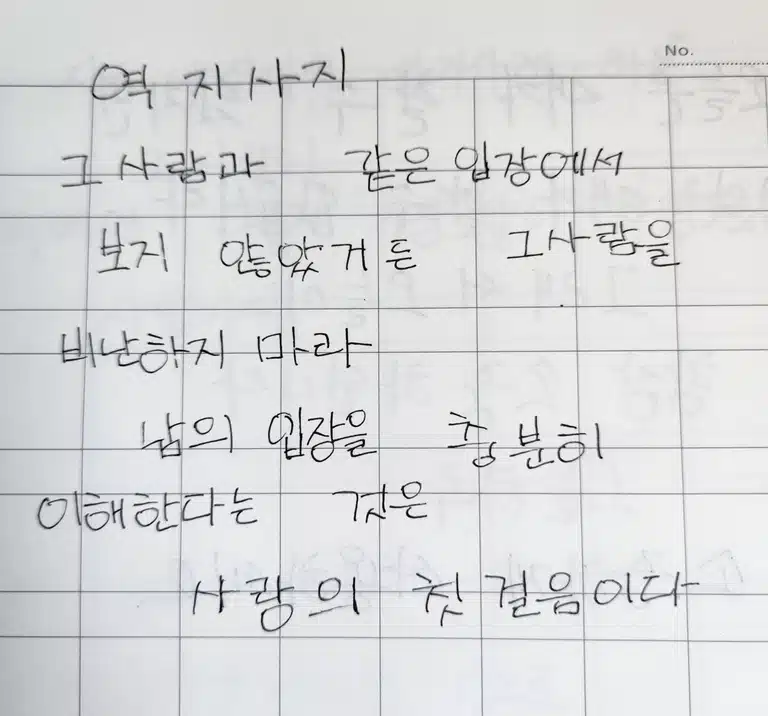 No.
역지사지
그 사람과 같은 입장에서
보지 않았거든 그 사람을
비난하지 마라
남의 입장을 충분히
이해한다는 것은
사랑의 첫 걸음이다